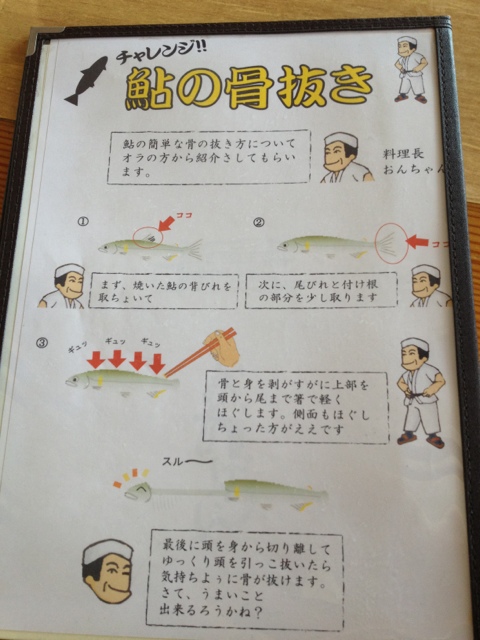 チャレンジ!!
鮎の骨抜き
鮎の簡単な骨の抜き方について
オラの方から紹介さしてもらい
ます。
料理長
おんちゃん
①
ココ
②
ココ
まず、焼いた鮎の背びれを
取ちょいて
次に、尾びれと付け根
の部分を少し取ります
③
ギュッ ギュッ ギュッ
骨と身を剥がすがに上部を
頭から尾まで箸で軽く
ほぐします。側面もほぐし
ちょった方がええです
スルー
最後に頭を身から切り離して
ゆっくり頭を引っこ抜いたら
気持ちよぅに骨が抜けます。
さて、うまいこと
出来るろうかね?